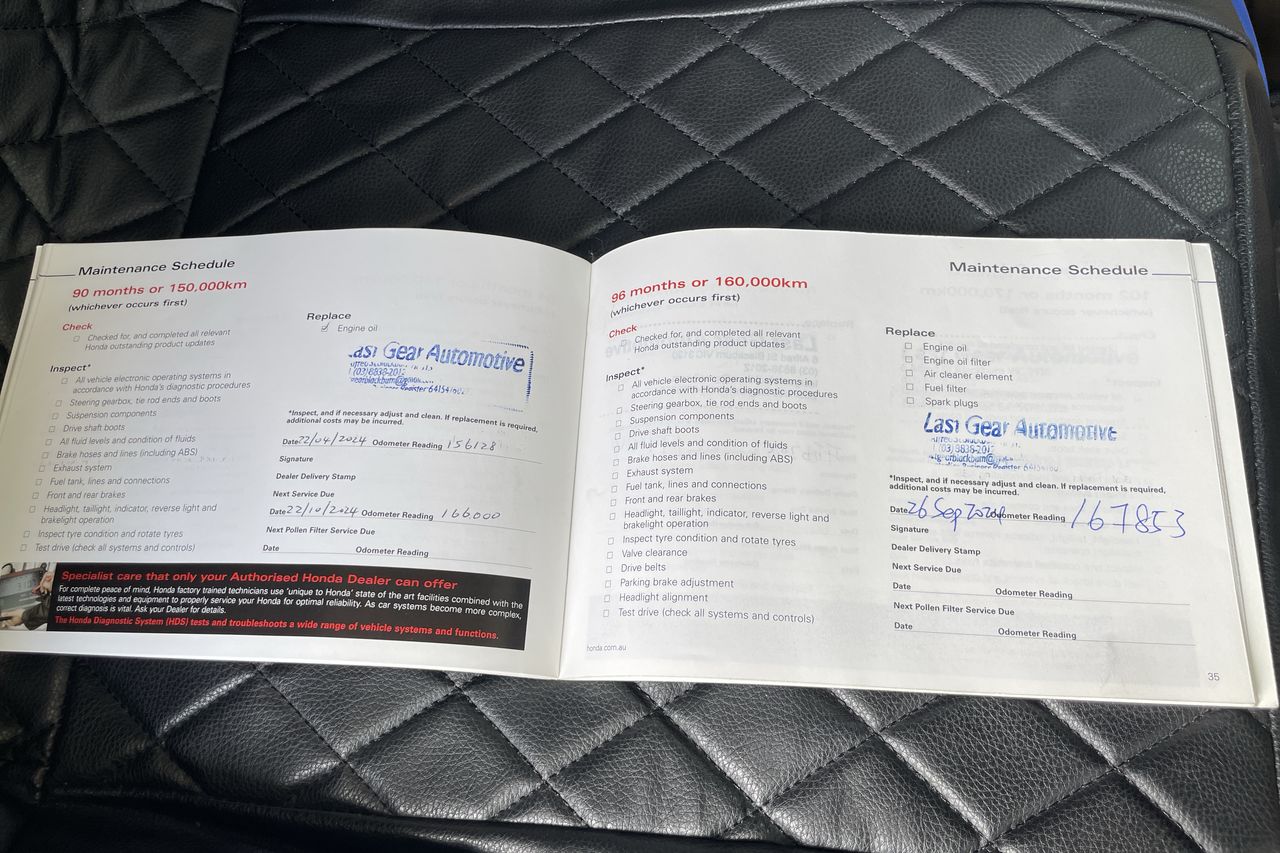 Maintenance Schedule
90 months or 150,000km
(whichever occurs first)
Check
Checked for, and completed all relevant
Honda outstanding product updates
Inspect*
All vehicle electronic operating systems in
accordance with Honda's diagnostic procedures
Steering gearbox, tie rod ends and boots
Suspension components
Drive shaft boots
All fluid levels and condition of fluids
Brake hoses and lines (including ABS)
Exhaust system
Fuel tank, lines and connections
Front and rear brakes
Headlight, taillight, indicator, reverse light and
brakelight operation
Inspect tyre condition and rotate tyres
Test drive (check all systems and controls)
Replace
Engine oil
Last Gear Automotive
(03) 9838-2012
*Inspect, and if necessary adjust and clean. If replacement is required,
additional costs may be incurred.
Date 22/04/2024 Odometer Reading 156128
Signature
Dealer Delivery Stamp
Next Service Due
Date 22/10/2024 Odometer Reading 166000
Next Pollen Filter Service Due
Date Odometer Reading
Specialist care that only your Authorised Honda Dealer can offer
For complete peace of mind, Honda factory trained technicians use 'unique to Honda' state of the art facilities combined with the
latest technologies and equipment to properly service your Honda for optimal reliability. As car systems become more complex,
correct diagnosis is vital. Ask your Dealer for details.
The Honda Diagnostic System (HDS) tests and troubleshoots a wide range of vehicle systems and functions.
Maintenance Schedule
96 months or 160,000km
(whichever occurs first)
Check
Checked for, and completed all relevant
Honda outstanding product updates
Inspect*
All vehicle electronic operating systems in
accordance with Honda's diagnostic procedures
Steering gearbox, tie rod ends and boots
Suspension components
Drive shaft boots
All fluid levels and condition of fluids
Brake hoses and lines (including ABS)
Exhaust system
Fuel tank, lines and connections
Front and rear brakes
Headlight, taillight, indicator, reverse light and
brakelight operation
Inspect tyre condition and rotate tyres
Valve clearance
Drive belts
Parking brake adjustment
Headlight alignment
Test drive (check all systems and controls)
honda.com.au
Replace
Engine oil
Engine oil filter
Air cleaner element
Fuel filter
Spark plugs
Last Gear Automotive
(03) 9838-2012
*Inspect, and if necessary adjust and clean. If replacement is required,
additional costs may be incurred.
Date 26 Sep 2024 Odometer Reading 167853
Signature
Dealer Delivery Stamp
Next Service Due
Date Odometer Reading
Next Pollen Filter Service Due
Date Odometer Reading
35